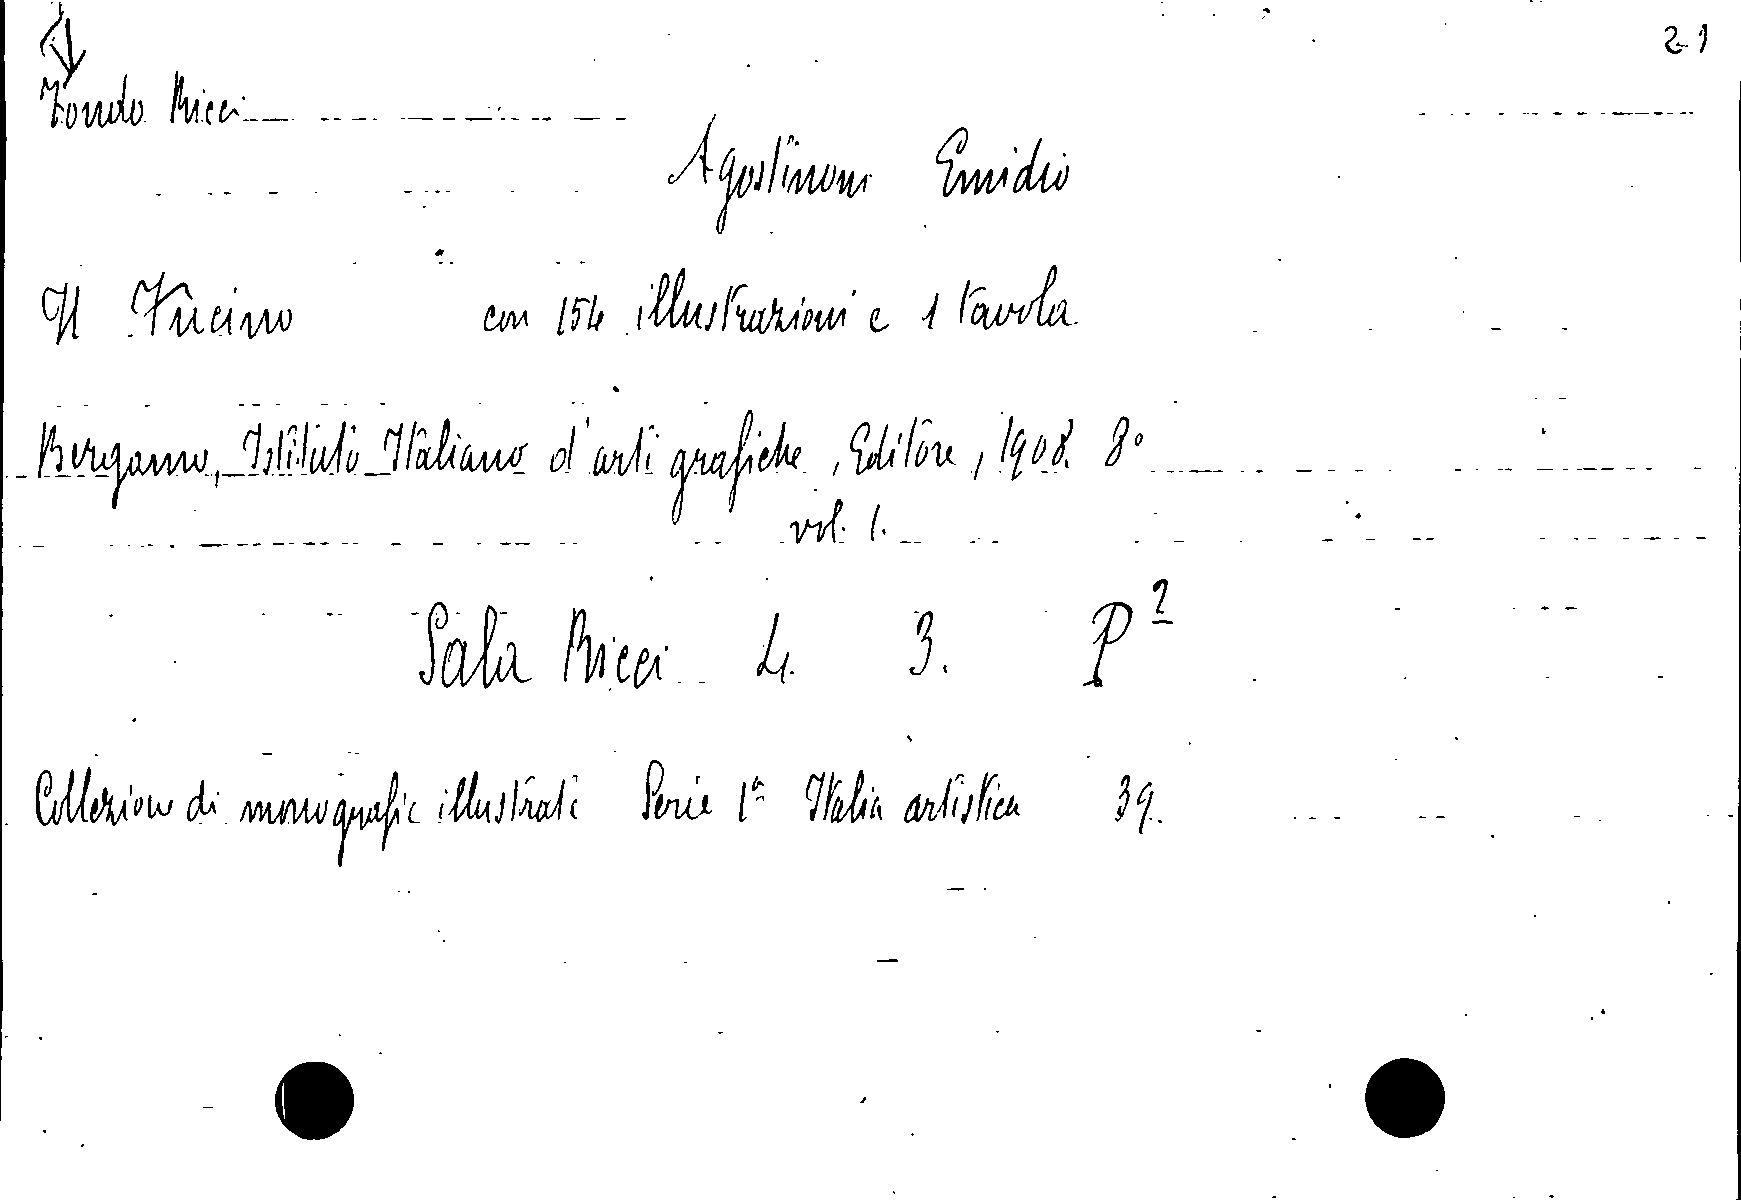 21
Fondo Ricci
Agostinoni Emidio
Il Fucino con 154 illustrazioni e 1 tavola
Bergamo, Istituto Italiano d'arti grafiche, Editore, 1908. 8º
vol. 1.
Sala Ricci 4. 3. P²
Collezione di monografie illustrate Serie 1ª Italia artistica 39.